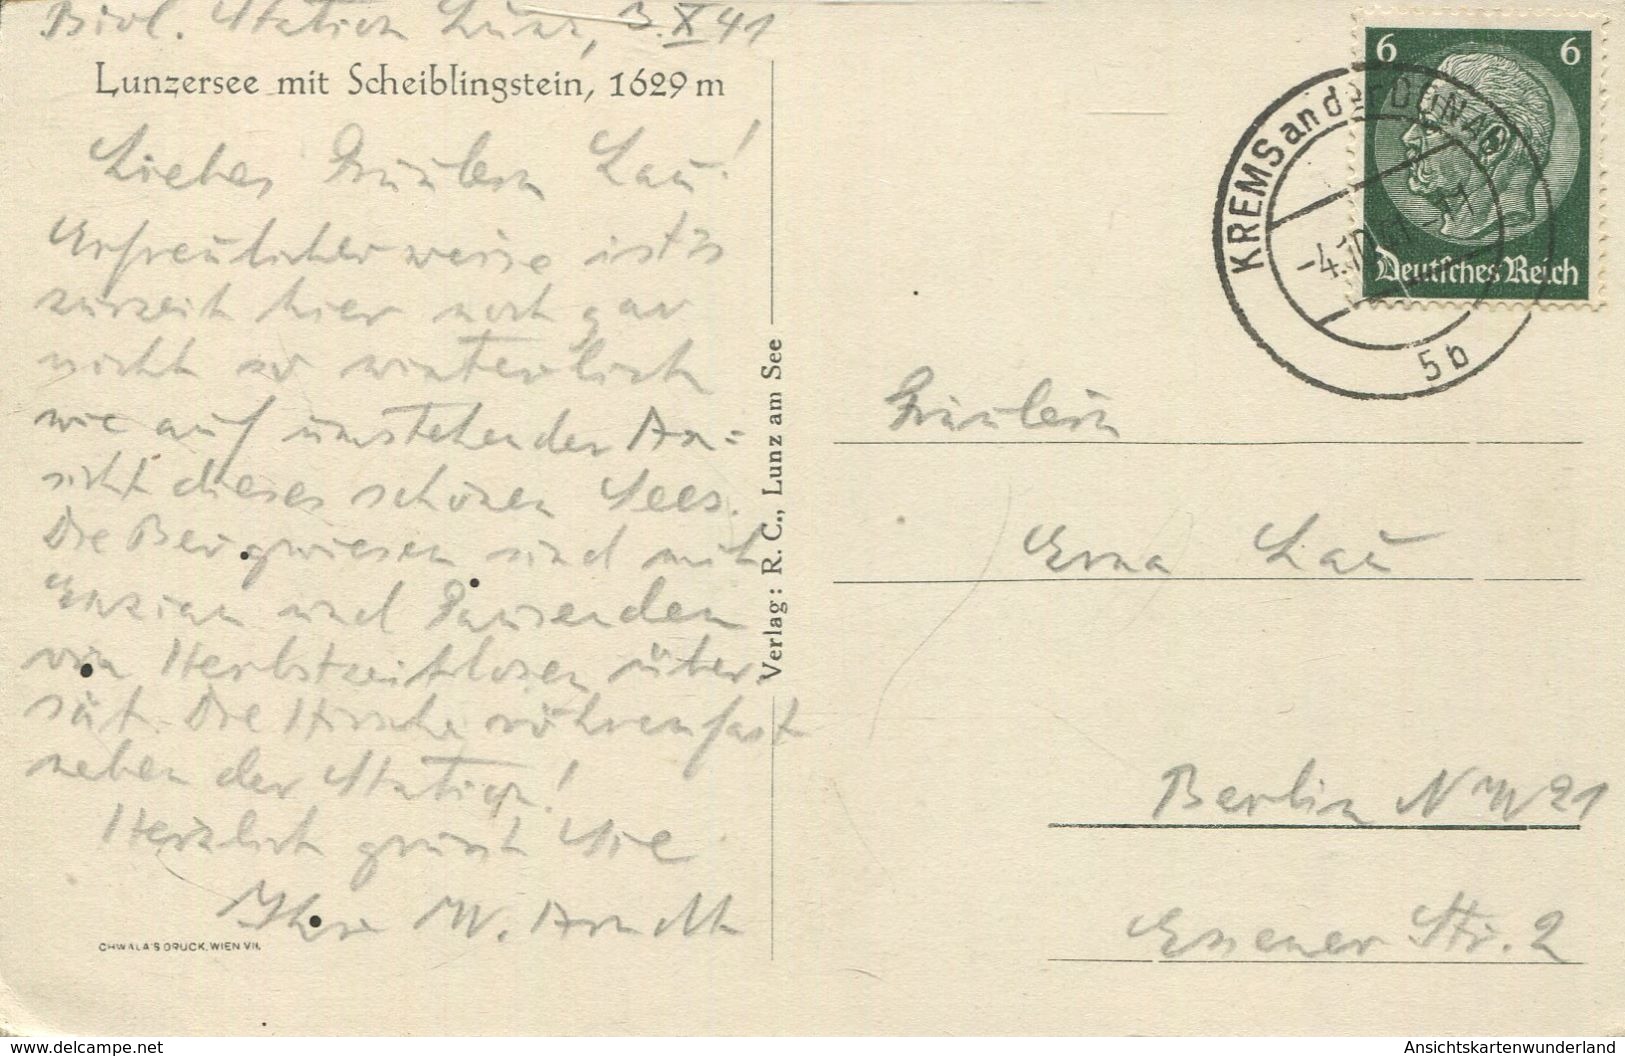 Biol. Station Lunz, 3.X41
Lunzersee mit Scheiblingstein, 1629 m
Liebes Fräulein Lau!
Erfreulicherweise ist's
zurzeit hier noch gar
nicht so winterlich
wie auf umstehender An=
sicht dieses schönen Sees.
Die Bergwiesen sind mit
Enzian und Tausenden
von Herbstzeitlosen über-
sät. Die Hirsche röhren fast
neben der Station!
Herzlich grüsst Sie
Ihre W. Arndt
CHWALA'S DRUCK, WIEN VII.
Verlag: R. C., Lunz am See
6 6
Deutsches Reich
KREMS an der DONAU
-4.10.41
5b
Fräulein
Erna Lau
Berlin NW 21
Essener Str. 2
www.delcampe.net
AnsichtskartenWunderland